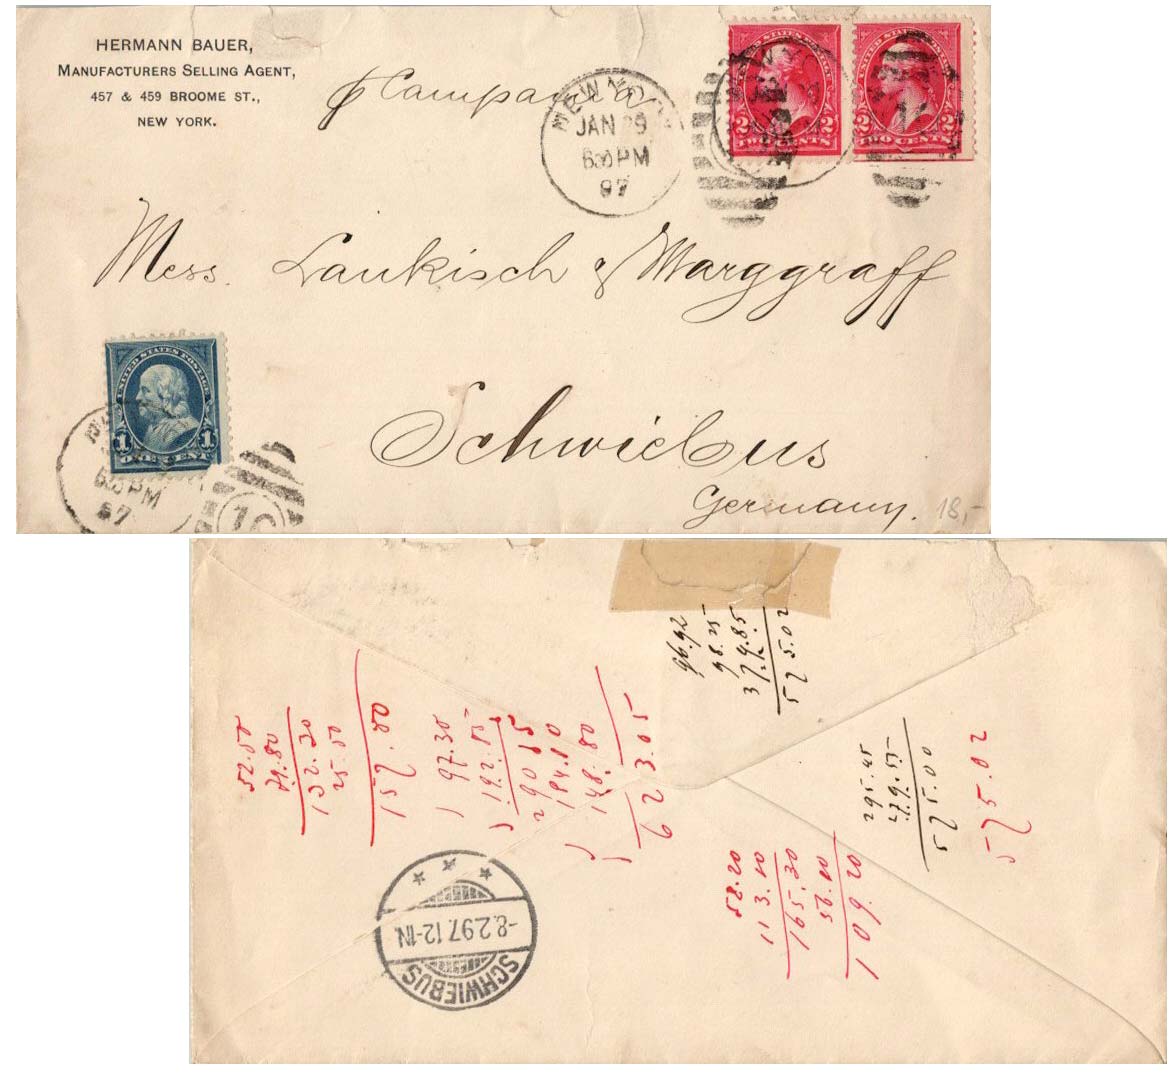 HERMANN BAUER,
MANUFACTURERS SELLING AGENT,
457 & 459 BROOME ST.,
NEW YORK.
p Campania
NEW YORK
JAN 29
630 PM
97
UNITED STATES POSTAGE
2 2
TWO CENTS
UNITED STATES POSTAGE
2 2
TWO CENTS
Mess. Laukisch & Marggraff
UNITED STATES POSTAGE
1 1
ONE CENT
630 PM
97
10
Schwiebus
Germany.
18,-
96.92
98.25
379.85
575.02
52.50
79.80
132.30
25.50
157.80
97.30
192.85
290 15
184.10
148.80
623.05
295.45
279.55
575.00
575.02
52.20
113.10
165.30
56.10
109.20
-8.2.97.12-1N.
SCHWIEBUS